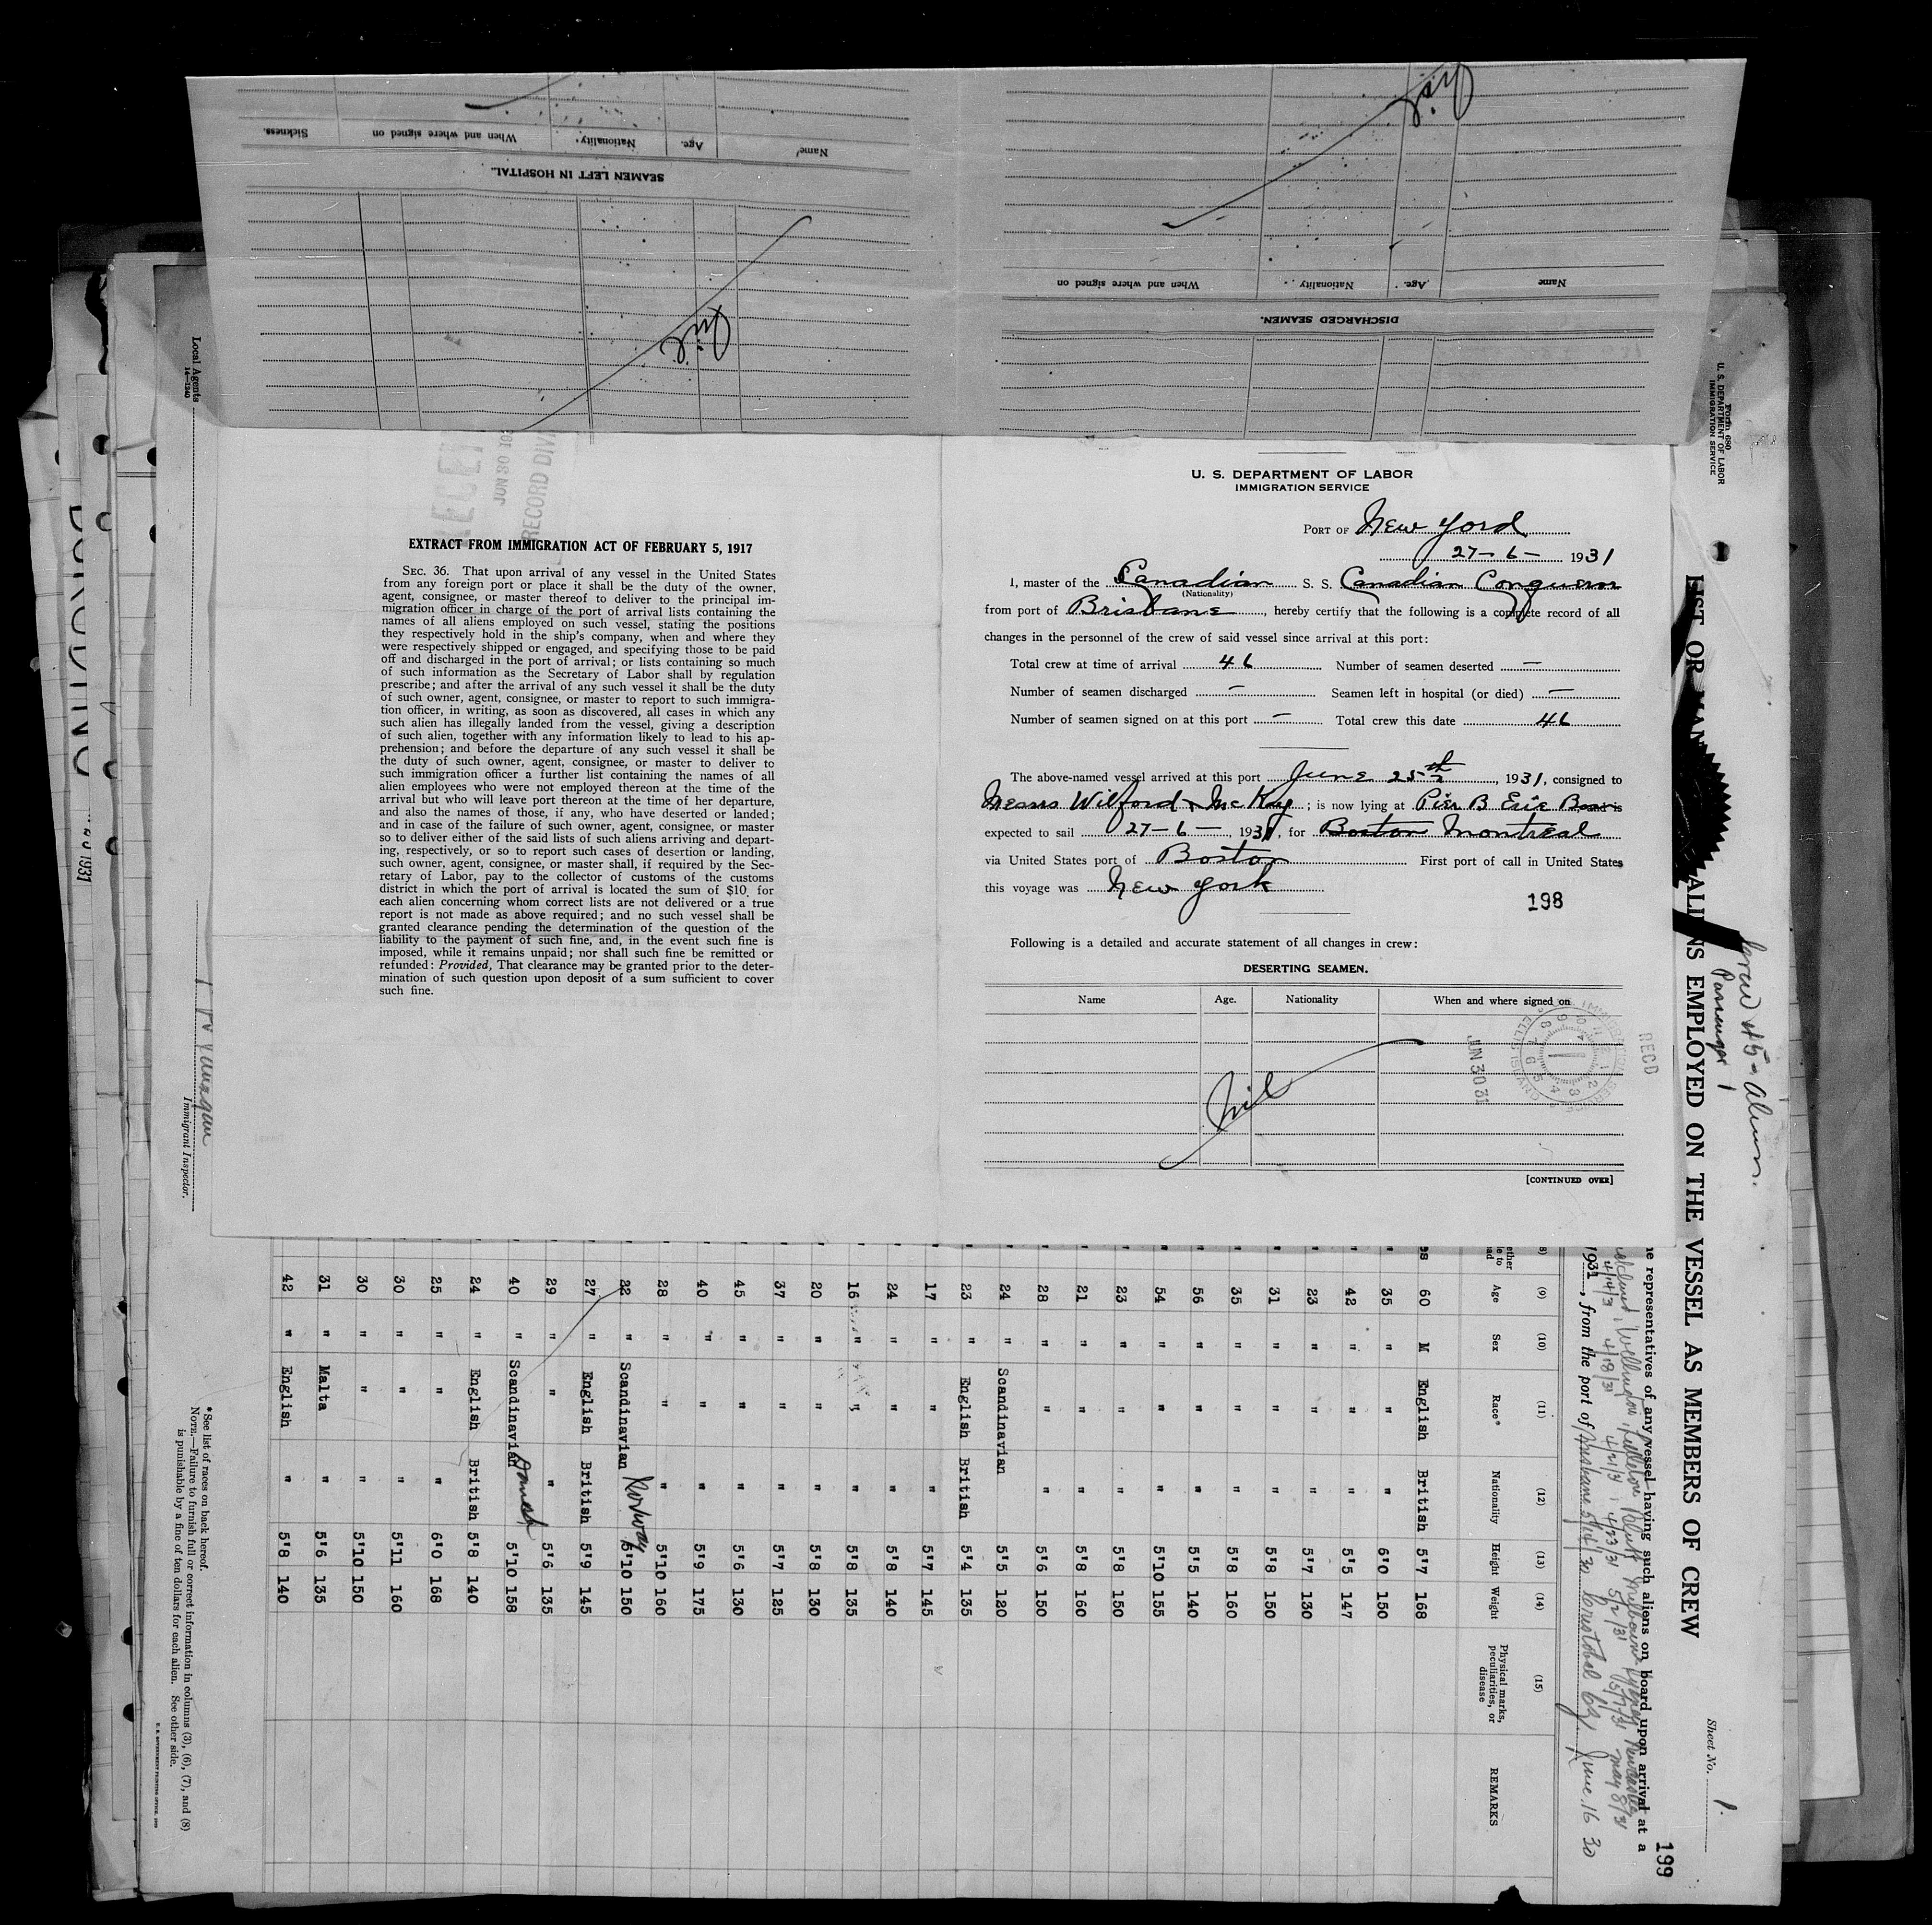 Sickness.
When and where signed on
Nationality
Age.
Name
SEAMEN LEFT IN HOSPITAL.
Nil
Nil
When and where signed on
Nationality
Age.
Name
DISCHARGED SEAMEN.
Nil
JUN 30 193
RECORD DIVI
EXTRACT FROM IMMIGRATION ACT OF FEBRUARY 5, 1917
SEC. 36. That upon arrival of any vessel in the United States
from any foreign port or place it shall be the duty of the owner,
agent, consignee, or master thereof to deliver to the principal im-
migration officer in charge of the port of arrival lists containing the
names of all aliens employed on such vessel, stating the positions
they respectively hold in the ship's company, when and where they
were respectively shipped or engaged, and specifying those to be paid
off and discharged in the port of arrival; or lists containing so much
of such information as the Secretary of Labor shall by regulation
prescribe; and after the arrival of any such vessel it shall be the duty
of such owner, agent, consignee, or master to report to such immigra-
tion officer, in writing, as soon as discovered, all cases in which any
such alien has illegally landed from the vessel, giving a description
of such alien, together with any information likely to lead to his ap-
prehension; and before the departure of any such vessel it shall be
the duty of such owner, agent, consignee, or master to deliver to
such immigration officer a further list containing the names of all
alien employees who were not employed thereon at the time of the
arrival but who will leave port thereon at the time of her departure,
and also the names of those, if any, who have deserted or landed;
and in case of the failure of such owner, agent, consignee, or master
so to deliver either of the said lists of such aliens arriving and depart-
ing, respectively, or so to report such cases of desertion or landing,
such owner, agent, consignee, or master shall, if required by the Sec-
retary of Labor, pay to the collector of customs of the customs
district in which the port of arrival is located the sum of $10 for
each alien concerning whom correct lists are not delivered or a true
report is not made as above required; and no such vessel shall be
granted clearance pending the determination of the question of the
liability to the payment of such fine, and, in the event such fine is
imposed, while it remains unpaid; nor shall such fine be remitted or
refunded: Provided, That clearance may be granted prior to the deter-
mination of such question upon deposit of a sum sufficient to cover
such fine.
U. S. DEPARTMENT OF LABOR
IMMIGRATION SERVICE
PORT OF New Yord
27-6- 1931
I, master of the Canadian S. S. Canadian Conqueror
(Nationality)
from port of Brisbane, hereby certify that the following is a complete record of all
changes in the personnel of the crew of said vessel since arrival at this port:
Total crew at time of arrival 46 Number of seamen deserted —
Number of seamen discharged — Seamen left in hospital (or died) —
Number of seamen signed on at this port — Total crew this date 46
The above-named vessel arrived at this port June 25th, 1931, consigned to
Messrs Wilford & McKay; is now lying at Pier B Erie B and is
expected to sail 27-6-, 1931, for Boston Montreal
via United States port of Boston First port of call in United States
this voyage was New York
198
Following is a detailed and accurate statement of all changes in crew:
DESERTING SEAMEN.
Name Age. Nationality When and where signed on
Nil
JUN 30 31
RECD
ELLIS ISLAND
[CONTINUED OVER]
Form 680
U. S. DEPARTMENT OF LABOR
IMMIGRATION SERVICE
LIST OR MAN ALIENS EMPLOYED ON THE VESSEL AS MEMBERS OF CREW
Crew 45 - Aliens.
Passenger 1
Sheet No. 1.
199
he representatives of any vessel having such aliens on board upon arrival at a
4/14/31 4/19/31 4/21/31 4/23/31 5/2/31 5/7/31 May 8/31
1931, from the port of Brisbane Cristobal June 16
(9) (10) (11) (12) (13) (14) (15)
Age Sex Race* Nationality Height Weight Physical marks, peculiarities, or disease REMARKS
60 M English British 5'7 168
35 " " " 6'0 150
42 " " " 5'5 147
23 " " " 5'7 130
31 " " " 5'8 150
35 " " " 5'8 160
56 " " " 5'5 140
54 " " " 5'10 155
23 " " " 5'8 150
21 " " " 5'8 160
28 " " " 5'6 150
24 " Scandinavian " 5'5 120
23 " English British 5'4 135
17 " " " 5'7 145
24 " " " 5'8 140
16 " " " 5'8 135
20 " " " 5'8 130
37 " " " 5'7 125
45 " " " 5'6 130
40 " " " 5'9 175
28 " " " 5'10 160
22 " Scandinavian Norway 5'10 150
27 " English British 5'9 145
29 " " " 5'6 135
40 " Scandinavian Danish 5'10 158
24 " English British 5'8 140
25 " " " 6'0 168
30 " " " 5'11 160
30 " " " 5'10 150
31 " Malta " 5'6 135
42 " English " 5'8 140
Local Agents
14-1240
Immigrant Inspector.
*See list of races on back hereof.
NOTE.—Failure to furnish full or correct information in columns (3), (6), (7), and (8)
is punishable by a fine of ten dollars for each alien. See other side.
U. S. GOVERNMENT PRINTING OFFICE
1931